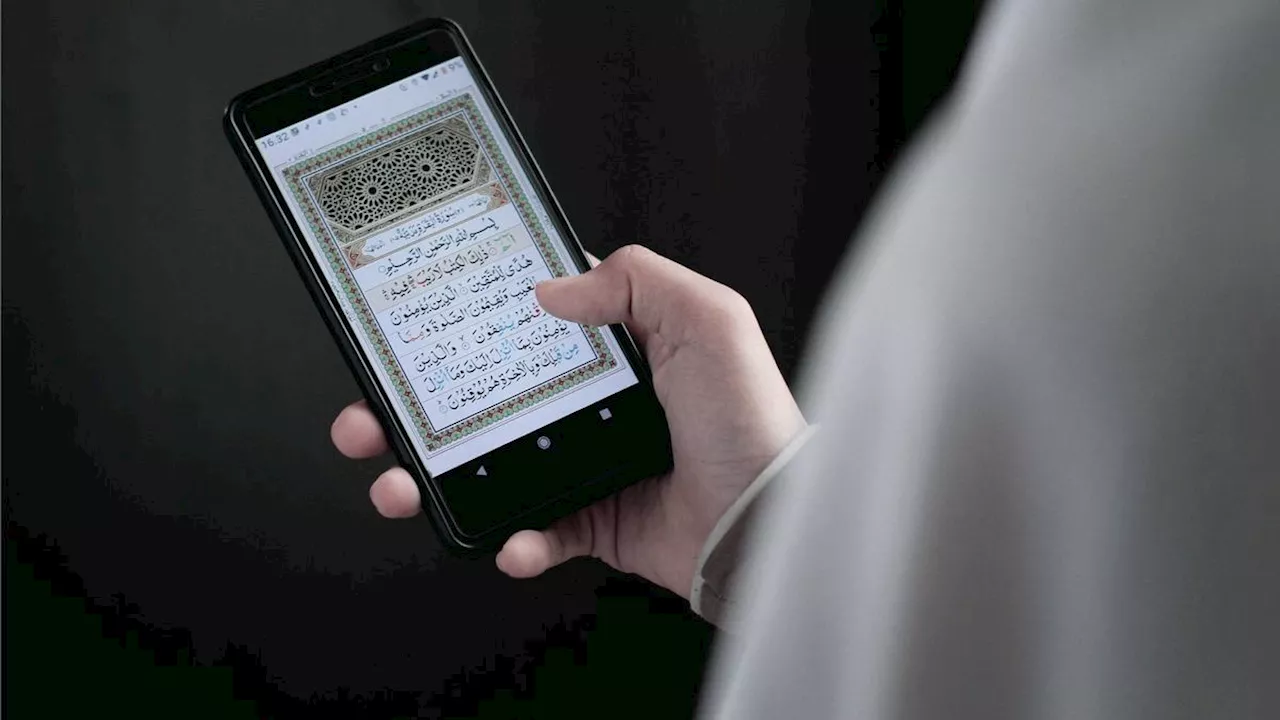 16:32 9%
سُورَةُ الْبَقَرَةِ
بِسْمِ اللّٰهِ الرَّحْمٰنِ الرَّحِيْمِ
الٓمّٓ ذٰلِكَ الْكِتٰبُ لَا رَيْبَ ۛ فِيْهِ ۛ
هُدًى لِّلْمُتَّقِيْنَ الَّذِيْنَ يُؤْمِنُوْنَ
وَيُقِيْمُوْنَ الصَّلٰوةَ وَمِمَّا
يُنْفِقُوْنَ وَالَّذِيْنَ
يُؤْمِنُوْنَ بِمَآ اُنْزِلَ اِلَيْكَ وَمَآ اُنْزِلَ
مِنْ قَبْلِكَ وَبِالْاٰخِرَةِ هُمْ يُوْقِنُوْنَ